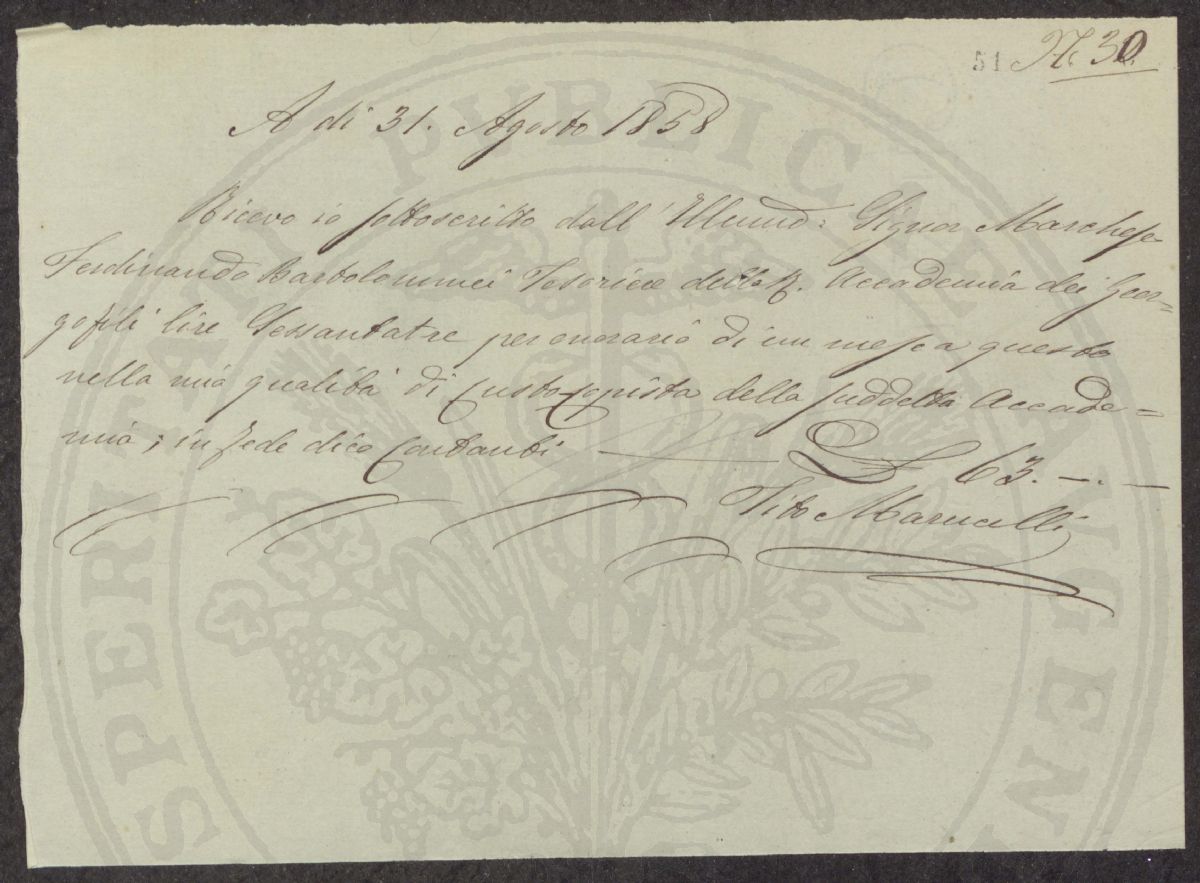 51 N. 30
A di 31. Agosto 1858
Ricevo io sottoscritto dall' Illumo: Signor Marchese
Ferdinando Bartolommei Tesoriere della R. Accademia dei Geor=
gofili lire Sessantatre per onorario di un mese a questo
nella mia qualità di Custode Copista della suddetta Accade=
mia; in fede dico Contanti — L 63. —. —
Tito Marucelli
PROSPERITATI PUBLICAE AUGEN